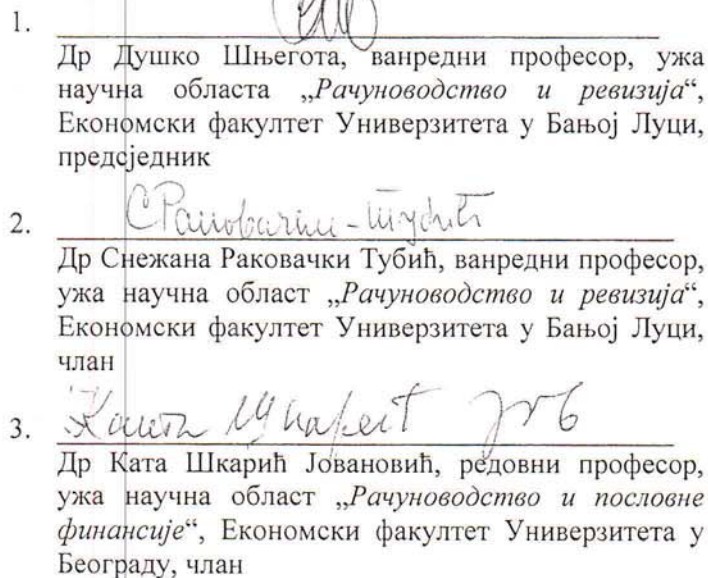 1.
Др Душко Шњегота, ванредни професор, ужа
научна областа „Рачуноводство и ревизија“,
Економски факултет Универзитета у Бањој Луци,
предсједник
2.
Др Снежана Раковачки Тубић, ванредни професор,
ужа научна област „Рачуноводство и ревизија“,
Економски факултет Универзитета у Бањој Луци,
члан
3.
Др Ката Шкарић Јовановић, редовни професор,
ужа научна област „Рачуноводство и пословне
финансије“, Економски факултет Универзитета у
Београду, члан